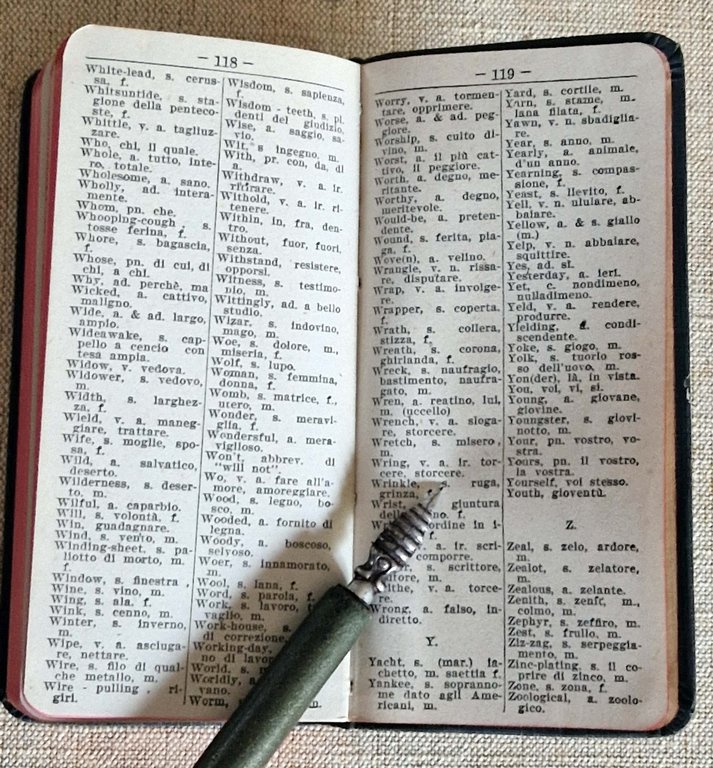 — 118 —
White-lead, s. cerus-
sa, f.
Whitsuntide, s. sta-
gione della penteco-
ste, f.
Whittle, v. a. tagliuz-
zare.
Who, chi, il quale.
Whole, a. tutto, inte-
ro, totale.
Wholesome, a. sano.
Wholly, ad. intera-
mente.
Whom, pn. che.
Whooping-cough, s.
tosse ferina, f.
Whore, s. bagascia,
f.
Whose, pn. di cui, di
chi, a chi.
Why, ad. perchè, ma
Wicked, a. cattivo,
maligno.
Wide, a. & ad. largo,
ampio.
Wideawake, s. cap-
pello a cencio con
tesa ampia.
Widow, v. vedova.
Widower, s. vedovo,
m.
Width, s. larghez-
za, f.
Wield, v. a. maneg-
giare, trattare.
Wife, s. moglie, spo-
sa, f.
Wild, a. salvatico,
deserto.
Wilderness, s. deser-
to, m.
Wilful, a. caparbio.
Will, s. volontà, f.
Win, guadagnare.
Wind, s. vento, m.
Winding-sheet, s. pa-
liotto di morto, m.
f.
Window, s. finestra,
Wine, s. vino, m.
Wing, s. ala, f.
Wink, s. cenno, m.
Winter, s. inverno,
m.
Wipe, v. a. asciuga-
re, nettare.
Wire, s. filo di qual-
che metallo, m.
Wire - pulling, ri-
giri.
Wisdom, s. sapienza,
f.
Wisdom - teeth, s. pl.
denti del giudizio.
Wise, a. saggio, sa-
vio.
Wit, s ingegno, m.
With, pr. con, da, di
a.
Withdraw, v. a. ir.
ritirare.
Withold, v. a. ir. ri-
tenere.
Within, in, fra, den-
tro.
Without, fuor, fuori,
senza.
Withstand, resistere,
opporsi.
Witness, s. testimo-
nio, m.
Wittingly, ad. a bello
studio.
Wizar, s. indovino,
mago, m.
Woe, s. dolore, m.,
miseria, f.
Wolf, s. lupo.
Woman, s. femmina,
donna, f.
Womb, s. matrice, f.,
utero, m.
Wonder, s. meravi-
glia, f.
Wonderful, a. mera-
viglioso.
Won't, abbrev. di
"will not".
Wo, v. a. fare all'a-
more, amoreggiare.
Wood, s. legno, bo-
sco, m.
Wooded, a. fornito di
legna.
Woody, a. boscoso,
selvoso.
Woer, s. innamorato,
m.
Wool, s. lana, f.
Word, s. parola, f.
Work, s. lavoro,
vaglio, m.
Work-house, s.
di correzione,
Working-day,
no di lavor
World, s. m
Worldly, a
vano.
Worm, m.
— 119 —
Worry, v. a. tormen-
tare, opprimere.
Worse, a. & ad. peg-
giore.
Worship, s. culto di-
vino, m.
Worst, a. il più cat-
tivo, il peggiore.
Worth, a. degno, me-
ritante.
Worthy, a. degno,
meritevole.
Would-be, a. preten-
dente.
Wound, s. ferita, pia-
ga, f.
Wove(n), a. velino.
Wrangle, v. n. rissa-
re, disputare.
Wrap, v. a. involge-
re.
Wrapper, s. coperta,
f.
Wrath, s. collera,
stizza, f.
Wreath, s. corona,
ghirlanda, f.
Wreck, s. naufragio,
bastimento, naufra-
gato, m.
Wren, a. reatino, lui,
m. (uccello)
Wrench, v. a. sloga-
re, storcere.
Wretch, s. misero,
m.
Wring, v. a. ir. tor-
cere, storcere.
Wrinkle, s. ruga,
grinza, f.
Wrist, giuntura
della mano. f.
ordine in i-
f.
a. ir. scri-
comporre.
s. scrittore,
m.
v. a. torce-
re.
Wrong, a. falso, in-
diretto.
Y.
Yacht, s. (mar.) ia-
chetto, m. saettia f.
Yankee, s. sopranno-
me dato agli Ame-
ricani, m.
Yard, s. cortile, m.
Yarn, s. stame, m.
lana filata, f.
Yawn, v. n. sbadiglia-
re.
Year, s. anno, m.
Yearly, a. animale,
d'un anno.
Yearning, s. compas-
sione, f.
Yeast, s. llevito, f.
Yell, v. n. ulular, ab-
baiare.
Yellow, a. & s. giallo
(m.)
Yelp, v. n. abbaiare,
squittire.
Yes, ad. sì.
Yesterday, a. ieri.
Yet, c. nondimeno,
nulladimeno.
Yeld, v. a. rendere,
produrre.
Ylelding, condi-
scendente.
Yoke, s. giogo, m.
Yolk, s. tuorlo ros-
so dell'uovo, m.
Yon(der), là, in vista.
You, voi, vi, si.
Young, a. giovane,
giovine.
Youngster, s. giovi-
notto, m.
Your, pn. vostro, vo-
stra.
Yours, pn. il vostro,
la vostra.
Yourself, voi stesso.
Youth, gioventù.
Z.
Zeal, s. zelo, ardore,
m.
Zealot, s. zelatore,
m.
Zealous, a. zelante.
Zenith, s. zenit, m.,
colmo, m.
Zephyr, s. zeffiro, m.
Zest, s. frullo, m.
Ziz-zag, s. serpeggia-
mento, m.
Zinc-plating, s. il co-
prire di zinco, m.
Zone, s. zona, f.
Zoological, a. zoolo-
gico.